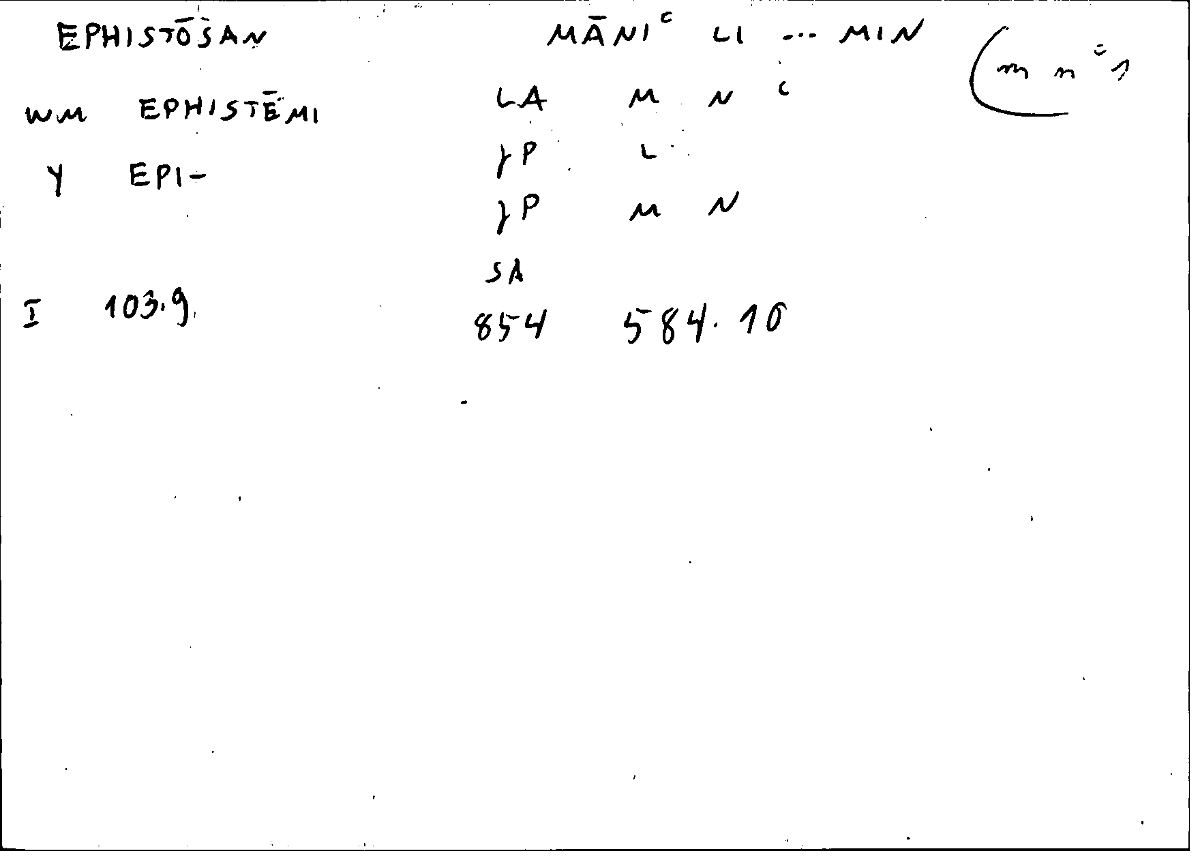 EPHISTŌSAN MĀNIᶜ LI ... MIN (m n ᶜ 1
WM EPHISTĒMI LA M N ᶜ
Y EPI- ȷP L
ȷP M N
SA
I 103.9. 854 584.10